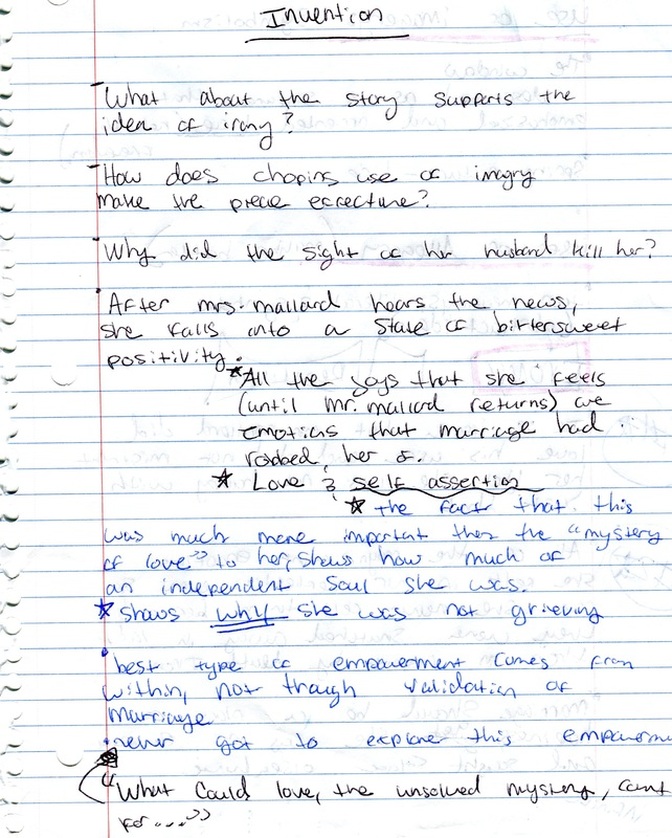 Invention
- What about the story supports the
idea of irony?
- How does chopins use of imagry
make the piece
- Why did the sight of her husband kill her?
• After mrs. mallard hears the news,
she falls into a state of bittersweet
positivity.
* All the joys that she feels
(until Mr. mallard returns) are
emotions that marriage had
robbed her of.
* Love & self assertion
* the fact that this
was much more important then the "mystery
of love" to her, shows how much of
an independent soul she was.
* shows why she was not grieving
• best type of empowerment comes from
within, not though validation of
marriage
• never got to explore this empowerme
"What could love, the unsolved mystery, count
for...."